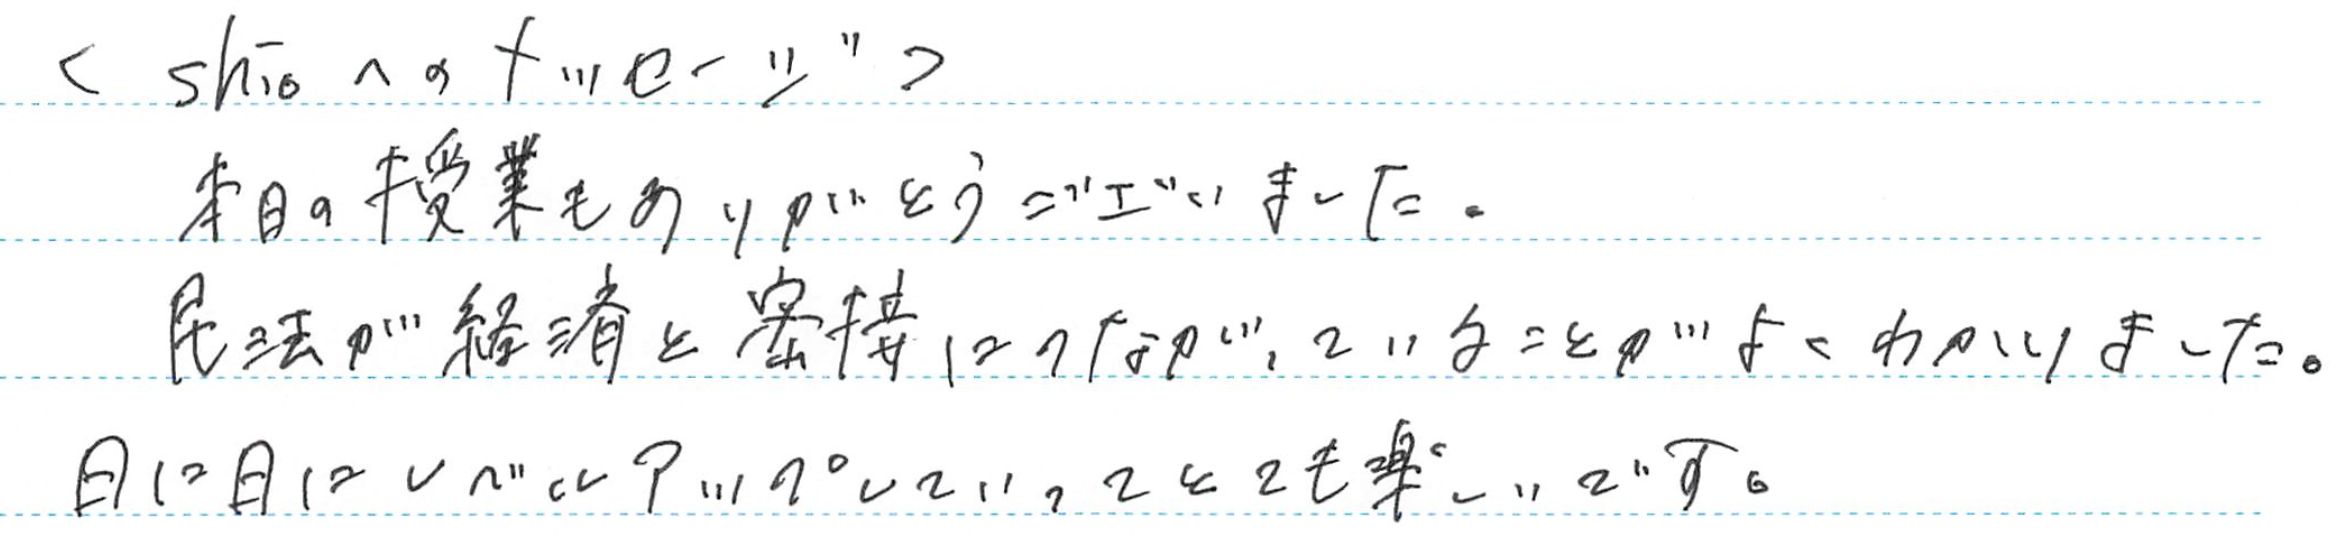 < shioへのメッセージ >
本日の授業もありがとうございました。
民法が経済と密接につながっていることがよくわかりました。
日に日にレベルアップしていってとても楽しいです。